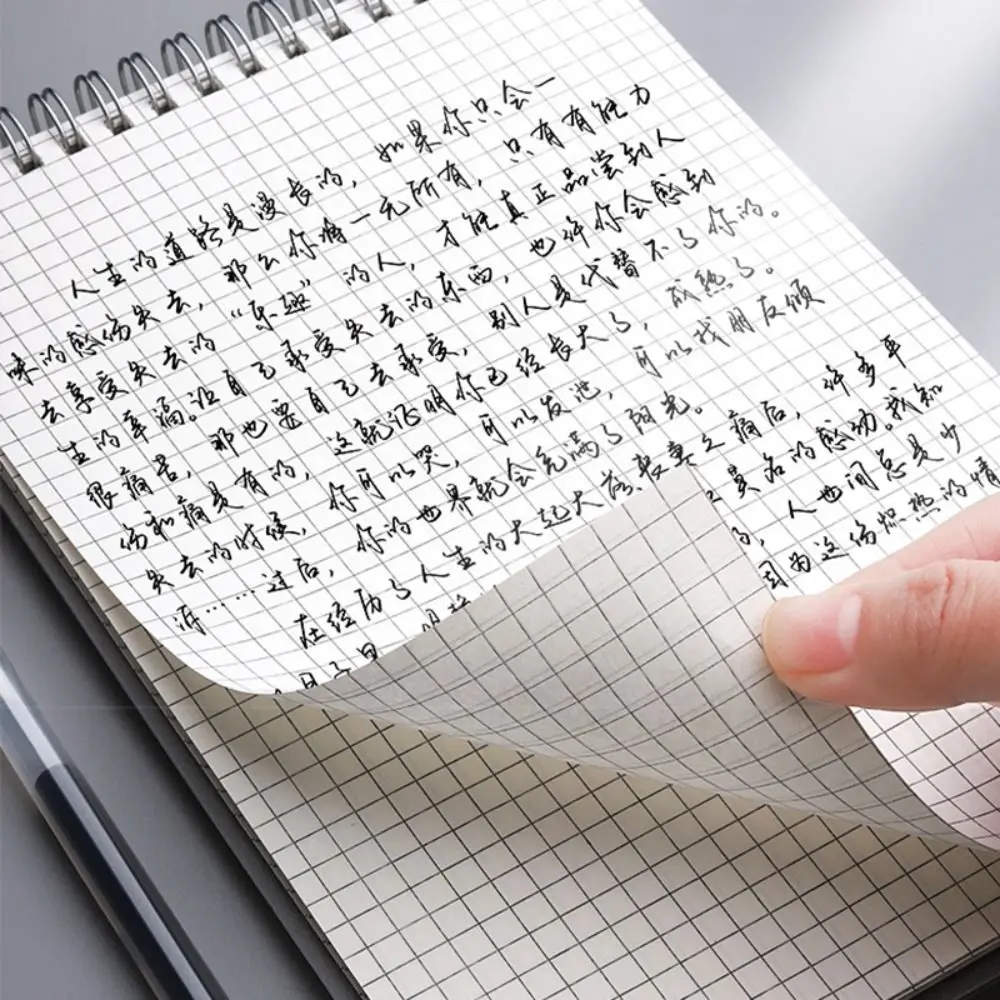 人生的道路是漫长的，如果你只会一
味的感伤失去，那么你将一无所有，只有有能力
去享受失去的“乐趣”的人，才能真正品尝到人
生的幸福。没自己承受失去的东西，也许你会感到
很痛苦，那也要自己去承受，别人是代替不了你的。
伤和痛是有的，这就证明你已经长大了，成熟了。
失去的时候，你可以哭，可以发泄，可以找朋友倾
诉……过后，你的世界就会充满了阳光。
在经历了人生的大起大落哀莫之痛后，许多平
莫名的感动。我知
，人世间总是少
因为这份炽热的情